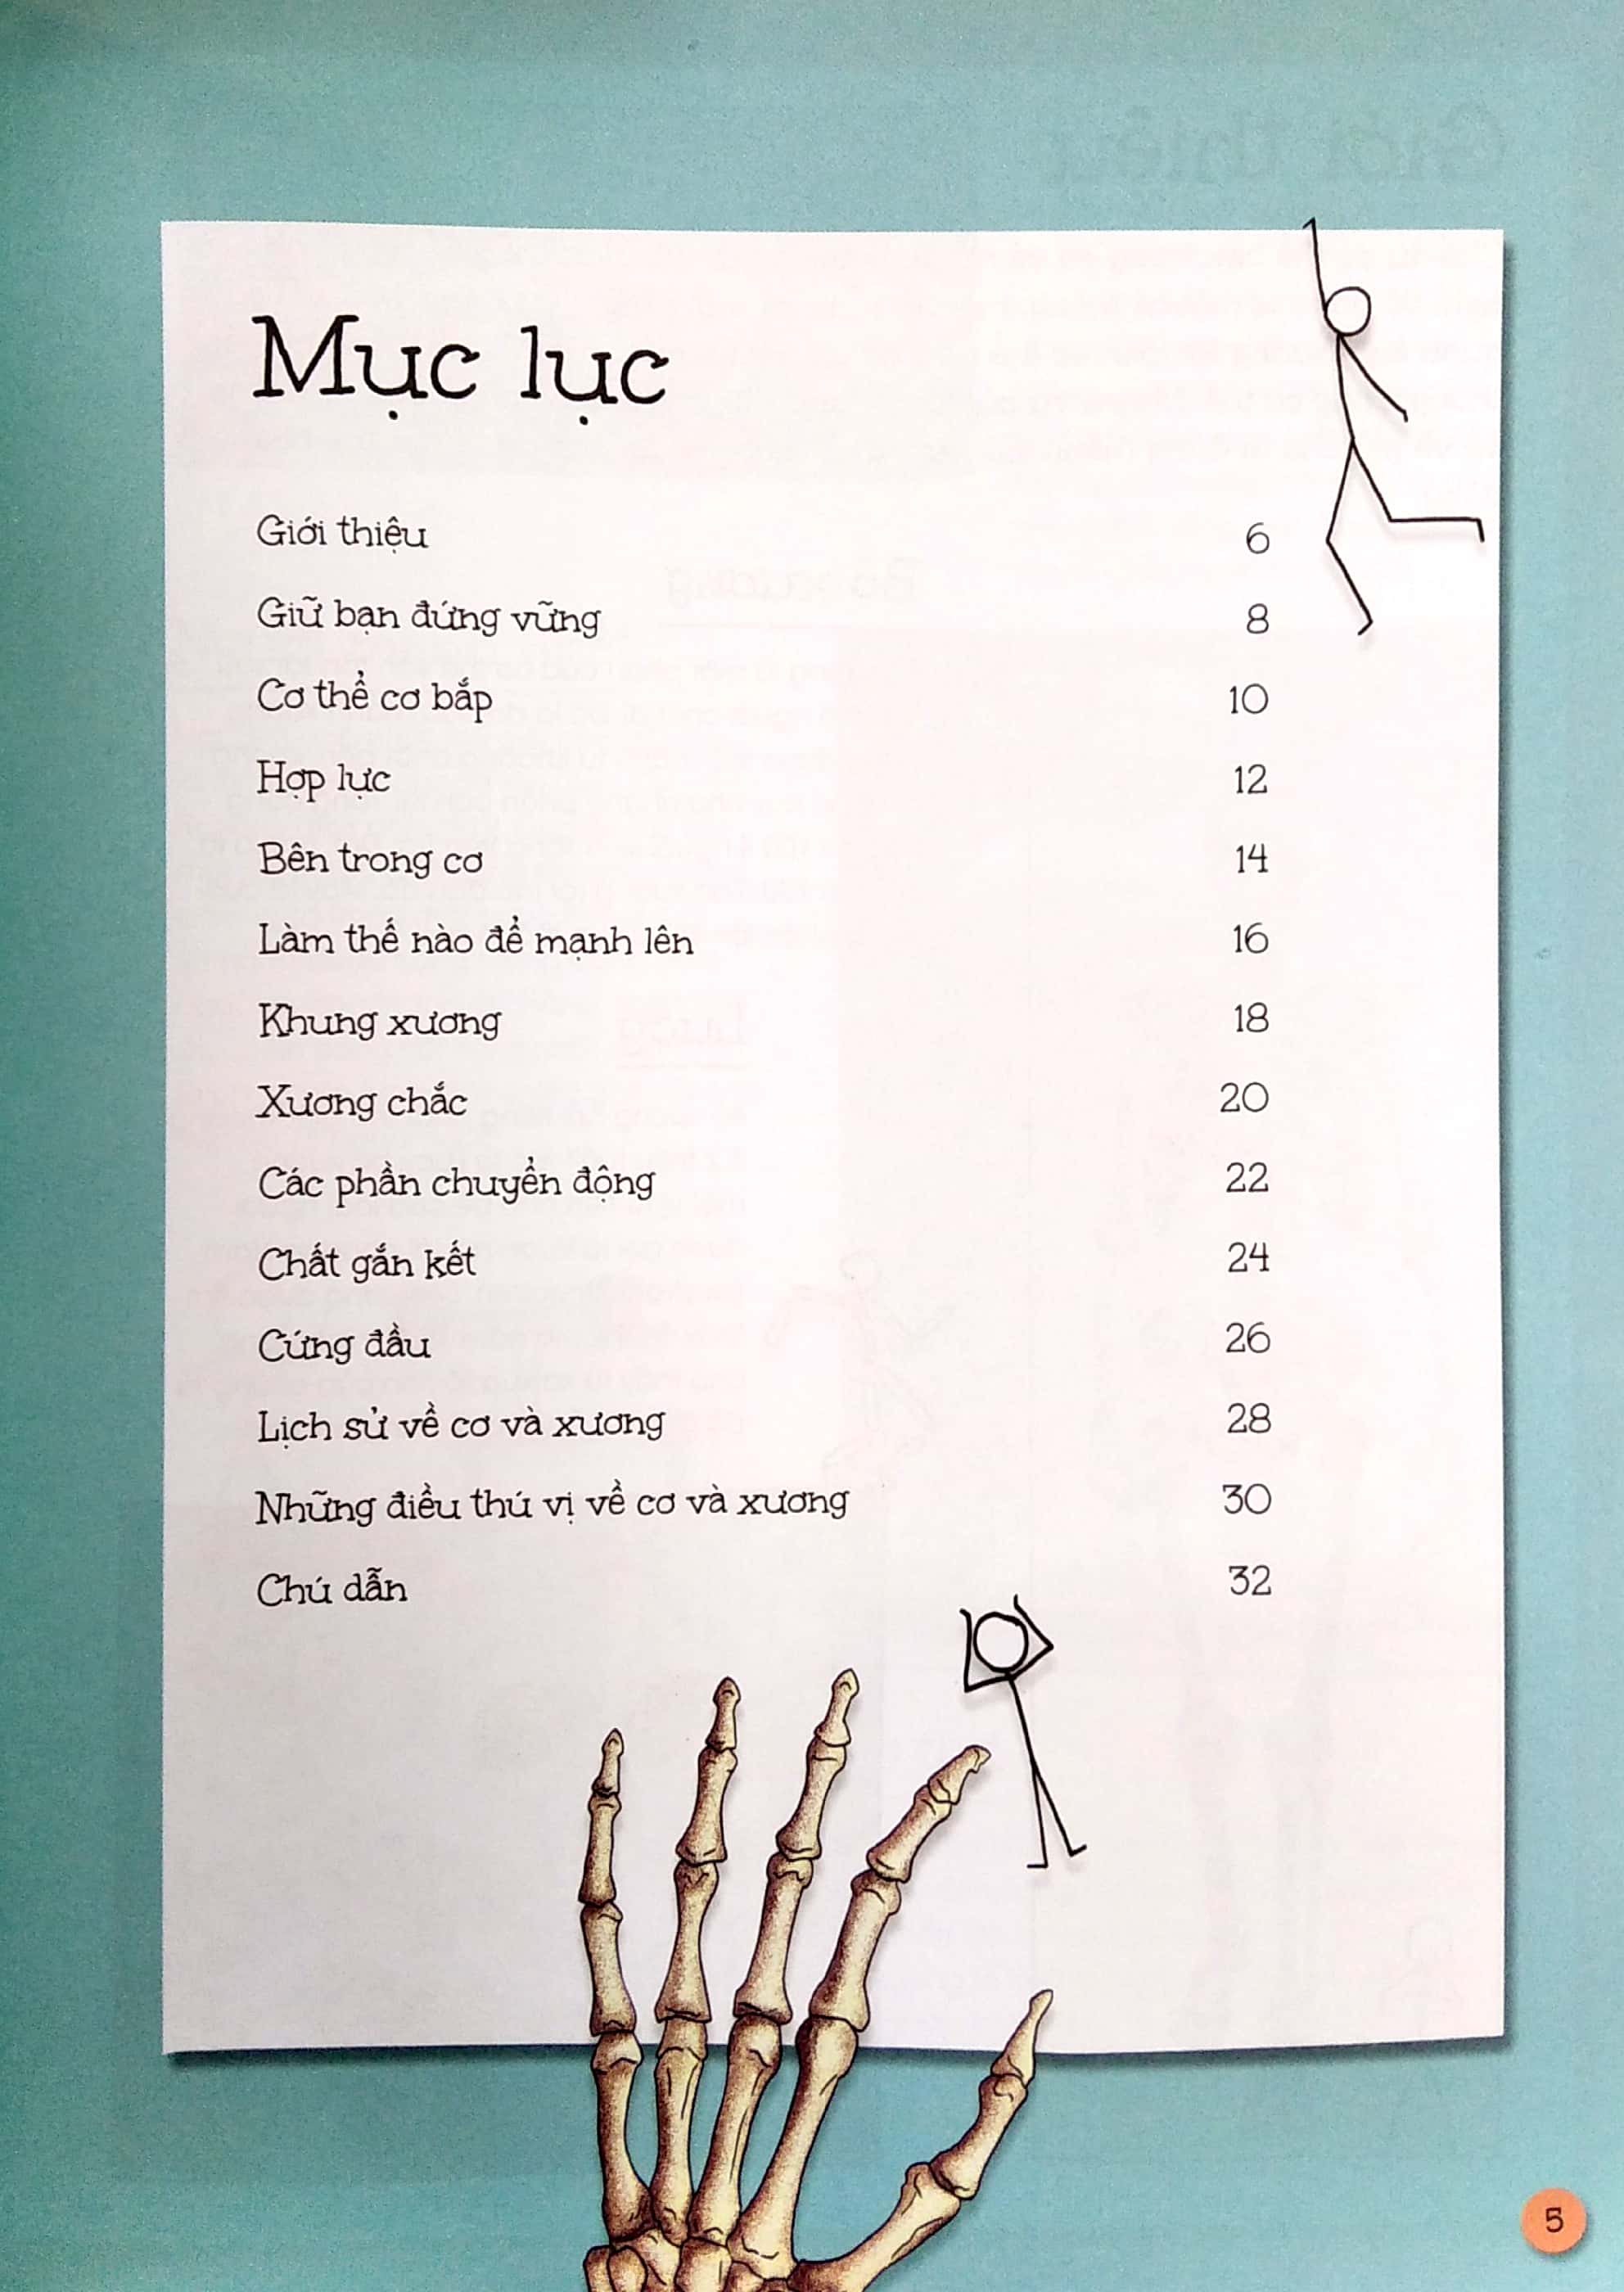 Mục lục
Giới thiệu 6
Giữ bạn đứng vững 8
Cơ thể cơ bắp 10
Hợp lực 12
Bên trong cơ 14
Làm thế nào để mạnh lên 16
Khung xương 18
Xương chắc 20
Các phần chuyển động 22
Chất gắn kết 24
Cứng đầu 26
Lịch sử về cơ và xương 28
Những điều thú vị về cơ và xương 30
Chú dẫn 32
5